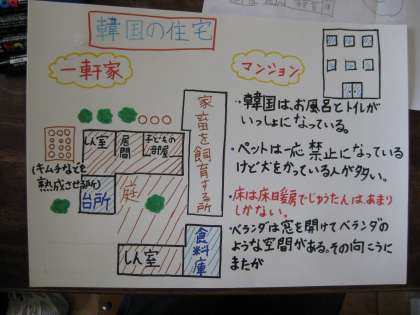 韓国の住宅
一軒家
マンション
しん室
居間
子どもの部屋
家畜を飼育する所
(キムチなどを
熟成させる所)
台所
庭
しん室
食料庫
・韓国は、お風呂とトイルが
いっしょになっている。
・ペットは一応禁止になっている
けど犬をかっている人が多い。
・床は床日暖房でじゅうたんは、あまり
しかない。
・ベランダは窓を開けてベランダの
ような空間がある。その向こうに
またが